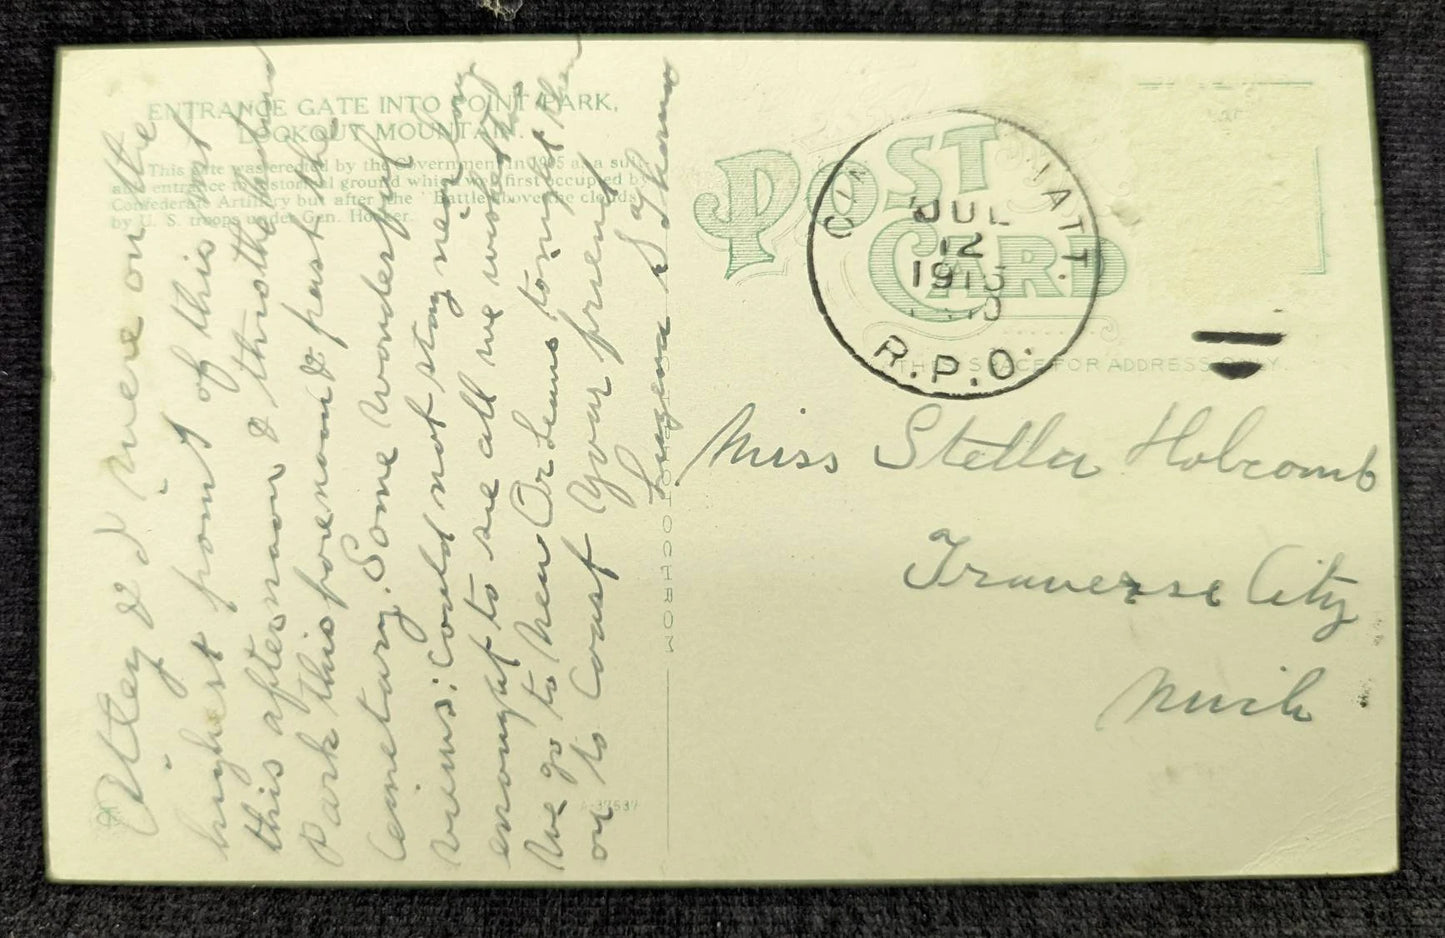 ENTRANCE GATE INTO POINT PARK,
LOOKOUT MOUNTAIN.
This gate was erected by the Government in 1905 as a suit-
able entrance to historical ground which was first occupied by
Confederate Artillery but after the "Battle above the clouds"
by U. S. troops under Gen. Hooker.
POST
CARD
CIN ATT.
JUL
12
1915
R.P.O.
THIS SPACE FOR ADDRESS ONLY.
Miss Stella Holcomb
Traverse City
Mich
& I were on the
highest point of this Mt
this afternoon & thro the Nat
Park this forenoon & past the
Cemetary. Some wonderful
views. Could not stay near long
enought to see all we wanted to
We go to New Orleans tonight then
on to Coast Your friend
PHOTOCHROM
A-37637